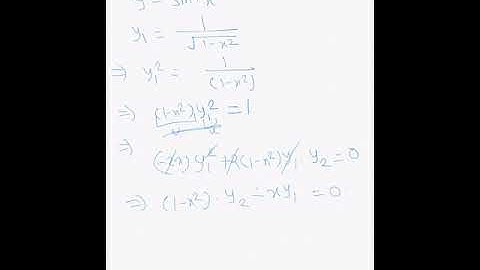 y = sin⁻¹x
y₁ = 1/√(1-x²)
⇒ y₁² = 1/(1-x²)
⇒ (1-x²) y₁² = 1
⇒
(-2x) y₁² + 2(1-x²) y₁ y₂ = 0
⇒ (1-x²) · y₂ - xy₁ = 0